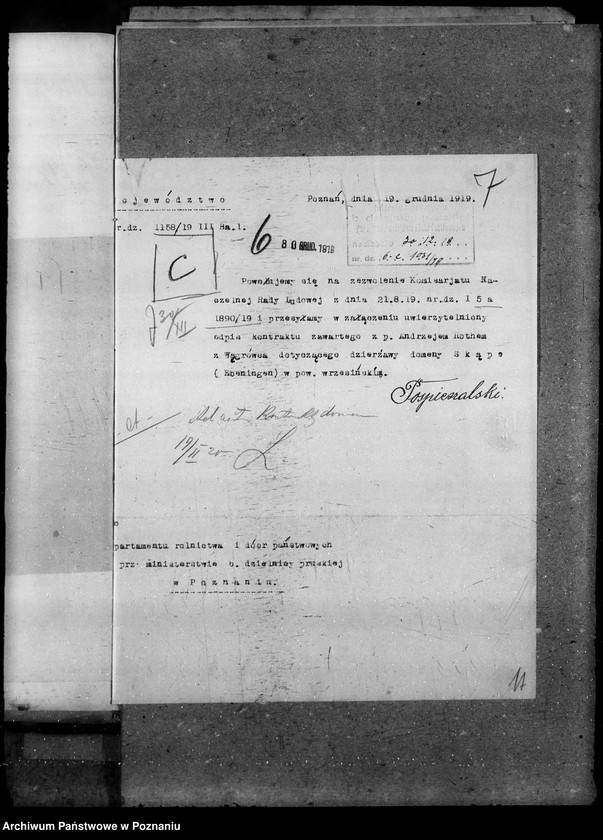 7
ojewództwo
Poznań, dnia 19. grudnia 1919.
r.dz. 1158/19 III Ha.1.
6
30 GRUD. 1919
30.12.19
nr. dz.
C
Powołujemy się na zezwolenie Komisarjatu Na-
czelnej Rady Ludowej z dnia 21.8.19. nr.dz. I 5 a
1890/19 i przesyłamy w załączeniu uwierzytelniony
odpis kontraktu zawartego z p. Andrzejem Rothem
z Wągrówca dotyczącego dzierżawy domeny Skąpe
( Ebeningen) w pow. wrzesińskim.
Pospieszalski.
19/II 20
o
partamentu rolnictwa i dóbr państwowych
prz. ministerstwie b. dzielnicy pruskiej
w Poznaniu.
11
Archiwum Państwowe w Poznaniu